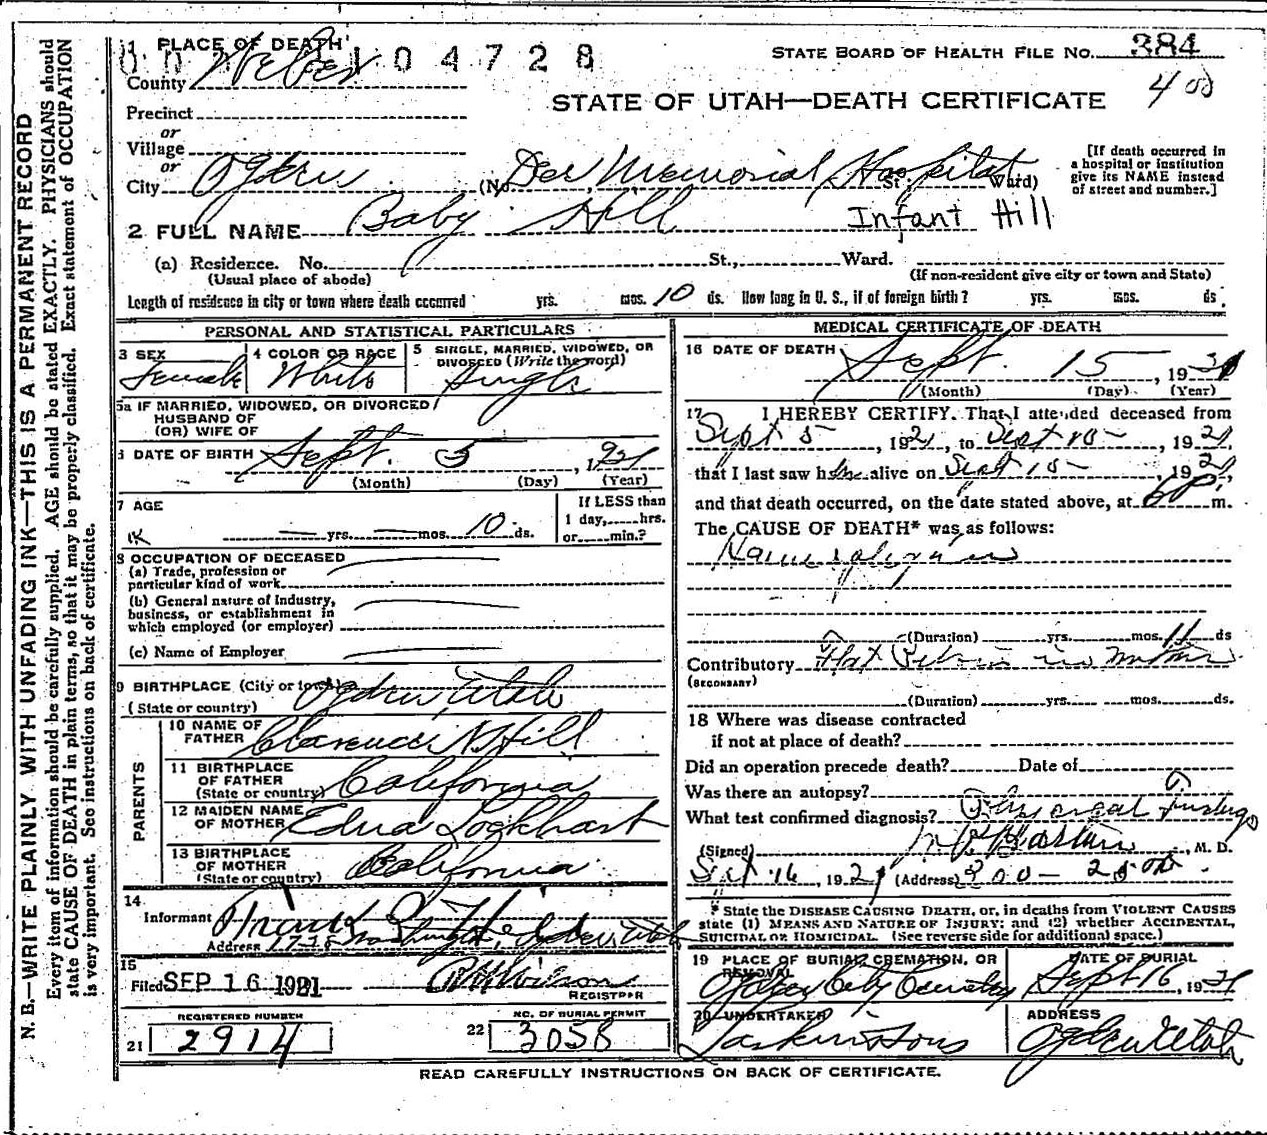 1 PLACE OF DEATH
0 0 2 1 0 4 7 2 8
STATE BOARD OF HEALTH FILE NO. 384
County Weber
STATE OF UTAH—DEATH CERTIFICATE
400
Precinct
or
Village
or
City Ogden (No. Dee Memorial Hospital St.; Ward)
[If death occurred in
a hospital or institution
give its NAME instead
of street and number.]
2 FULL NAME Baby Hill Infant Hill
(a) Residence. No. St., Ward.
(Usual place of abode) (If non-resident give city or town and State)
Length of residence in city or town where death occurred yrs. mos. 10 ds. How long in U. S., if of foreign birth? yrs. mos. ds.
PERSONAL AND STATISTICAL PARTICULARS
3 SEX Female
4 COLOR OR RACE White
5 SINGLE, MARRIED, WIDOWED, OR
DIVORCED (Write the word)
Single
5a IF MARRIED, WIDOWED, OR DIVORCED
HUSBAND OF
(OR) WIFE OF
6 DATE OF BIRTH Sept. 5, 1921
(Month) (Day) (Year)
7 AGE
yrs. mos. 10 ds.
If LESS than
1 day, hrs.
or min.?
8 OCCUPATION OF DECEASED
(a) Trade, profession or
particular kind of work
(b) General nature of Industry,
business, or establishment in
which employed (or employer)
(c) Name of Employer
9 BIRTHPLACE (City or town) Ogden, Utah
(State or country)
PARENTS
10 NAME OF
FATHER Clarence N. Hill
11 BIRTHPLACE
OF FATHER
(State or country) California
12 MAIDEN NAME
OF MOTHER Edna Lockhart
13 BIRTHPLACE
OF MOTHER
(State or country) California
14
Informant Frank
Address Washington, Ogden, Utah
15
Filed SEP 16 1921 Wilson
REGISTRAR
REGISTERED NUMBER
21 2914
NO. OF BURIAL PERMIT
22 3058
MEDICAL CERTIFICATE OF DEATH
16 DATE OF DEATH
Sept. 15, 1921
(Month) (Day) (Year)
17 I HEREBY CERTIFY, That I attended deceased from
Sept 5, 1921, to Sept 15, 1921,
that I last saw h alive on Sept 15, 1921,
and that death occurred, on the date stated above, at 6 P. m.
The CAUSE OF DEATH* was as follows:
(Duration) yrs. mos. 11 ds
Contributory in mother
(SECONDARY)
(Duration) yrs. mos. ds.
18 Where was disease contracted
if not at place of death?
Did an operation precede death? Date of
Was there an autopsy?
What test confirmed diagnosis? Physical findings
(Signed) , M. D.
Sept 16, 1921 (Address)
* State the DISEASE CAUSING DEATH, or, in deaths from VIOLENT CAUSES
state (1) MEANS AND NATURE OF INJURY; and (2) whether ACCIDENTAL,
SUICIDAL or HOMICIDAL. (See reverse side for additional space.)
19 PLACE OF BURIAL, CREMATION, OR
REMOVAL
Ogden City Cemetery
DATE OF BURIAL
Sept 16, 1921
20 UNDERTAKER
Larkin & Sons
ADDRESS
Ogden Utah
READ CAREFULLY INSTRUCTIONS ON BACK OF CERTIFICATE.
N. B.—WRITE PLAINLY WITH UNFADING INK—THIS IS A PERMANENT RECORD
Every item of information should be carefully supplied. AGE should be stated EXACTLY. PHYSICIANS should
state CAUSE OF DEATH in plain terms, so that it may be properly classified. Exact statement of OCCUPATION
is very important. See instructions on back of certificate.